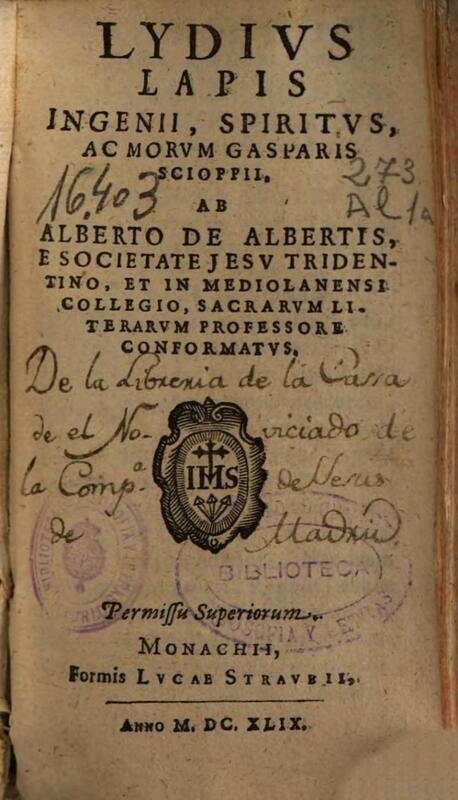 LYDIVS
LAPIS
INGENII, SPIRITVS,
AC MORVM GASPARIS
SCIOPPII,
16.403
273
Al 1a
AB
ALBERTO DE ALBERTIS,
E SOCIETATE JESV TRIDEN-
TINO, ET IN MEDIOLANENSI
COLLEGIO, SACRARVM LI-
TERARVM PROFESSORE
CONFORMATVS,
De la Libreria de la Cassa
de el No- viciado de
IHS
la Comp.ª de Jesus
de Madrid.
BIBLIOTECA
Permissu Superiorum.
MONACHII,
Formis LVCAE STRAVBII,
ANNO M. DC. XLIX.